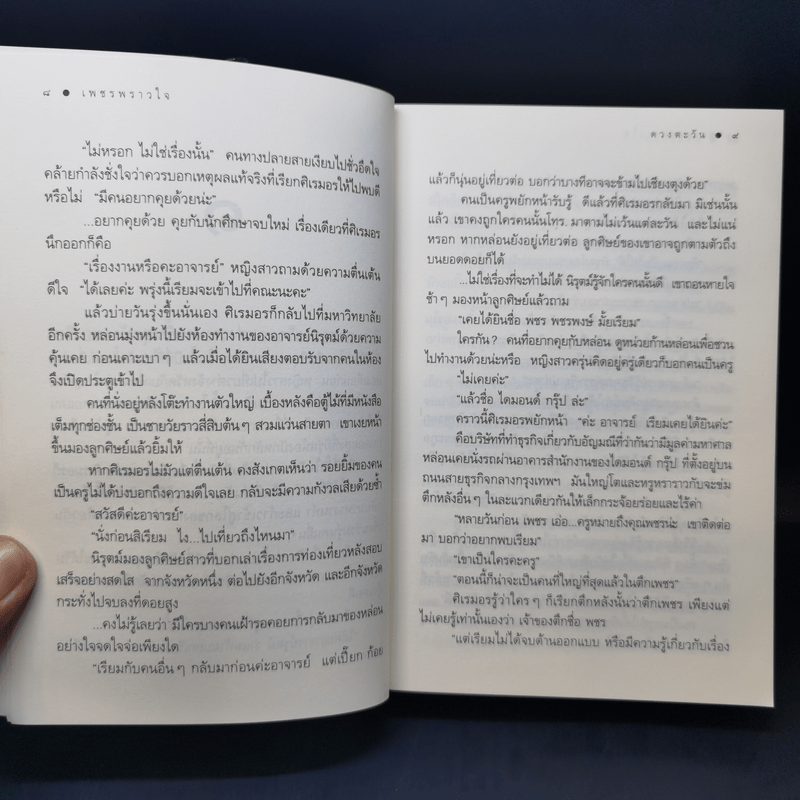 ๘ ● เพชรพราวใจ
“ไม่หรอก ไม่ใช่เรื่องนั้น” คนทางปลายสายเงียบไปชั่วอึดใจ
คล้ายกำลังชั่งใจว่าควรบอกเหตุผลแท้จริงที่เรียกศิเรมอรให้ไปพบดี
หรือไม่ “มีคนอยากคุยด้วยน่ะ”
...อยากคุยด้วย คุยกับนักศึกษาจบใหม่ เรื่องเดียวที่ศิเรมอร
นึกออกก็คือ
“เรื่องงานหรือคะอาจารย์” หญิงสาวถามด้วยความตื่นเต้น
ดีใจ “ได้เลยค่ะ พรุ่งนี้เรียมจะเข้าไปที่คณะนะคะ”
แล้วบ่ายวันรุ่งขึ้นนั่นเอง ศิเรมอรก็กลับไปที่มหาวิทยาลัย
อีกครั้ง หล่อนมุ่งหน้าไปยังห้องทำงานของอาจารย์นิรุตม์ด้วยความ
คุ้นเคย ก่อนเคาะเบาๆ แล้วเมื่อได้ยินเสียงตอบรับจากคนในห้อง
จึงเปิดประตูเข้าไป
คนที่นั่งอยู่หลังโต๊ะทำงานตัวใหญ่ เบื้องหลังคือตู้ไม้ที่มีหนังสือ
เต็มทุกช่องชั้น เป็นชายวัยราวสี่สิบต้นๆ สวมแว่นสายตา เขาเงยหน้า
ขึ้นมองลูกศิษย์แล้วยิ้มให้
หากศิเรมอรไม่มัวแต่ตื่นเต้น คงสังเกตเห็นว่า รอยยิ้มของคน
เป็นครูไม่ได้บ่งบอกถึงความดีใจเลย กลับจะมีความกังวลเสียด้วยซ้ำ
“สวัสดีค่ะอาจารย์”
“นั่งก่อนสิเรียม ไง...ไปเที่ยวถึงไหนมา”
นิรุตม์มองลูกศิษย์สาวที่บอกเล่าเรื่องการท่องเที่ยวหลังสอบ
เสร็จอย่างสดใส จากจังหวัดหนึ่ง ต่อไปยังอีกจังหวัด และอีกจังหวัด
กระทั่งไปจบลงที่ดอยสูง
...คงไม่รู้เลยว่า มีใครบางคนเฝ้ารอคอยการกลับมาของหล่อน
อย่างใจจดใจจ่อเพียงใด
“เรียมกับคนอื่นๆ กลับมาก่อนค่ะอาจารย์ แต่เปี๊ยก ก้อย
ดวงตะวัน ● ๙
แล้วก็นุ่นอยู่เที่ยวต่อ บอกว่าบางทีอาจจะข้ามไปเชียงตุงด้วย”
คนเป็นครูพยักหน้ารับรู้ ดีแล้วที่ศิเรมอรกลับมา มิเช่นนั้น
แล้ว เขาคงถูกใครคนนั้นโทร.มาตามไม่เว้นแต่ละวัน และไม่แน่
หรอก หากหล่อนยังอยู่เที่ยวต่อ ลูกศิษย์ของเขาอาจถูกตามตัวถึง
บนยอดดอยก็ได้
...ไม่ใช่เรื่องที่จะทำไม่ได้ นิรุตม์รู้จักใครคนนั้นดี เขาถอนหายใจ
ช้าๆ มองหน้าลูกศิษย์แล้วถาม
“เคยได้ยินชื่อ พชร พชรพงษ์ มั้ยเรียม”
ใครกัน? คนที่อยากคุยกับหล่อน ดูหน่วยก้านหล่อนเพื่อชวน
ไปทำงานด้วยน่ะหรือ หญิงสาวครุ่นคิดอยู่ครู่เดียวก็บอกคนเป็นครู
“ไม่เคยค่ะ”
“แล้วชื่อ ไดมอนด์ กรุ๊ป ล่ะ”
คราวนี้ศิเรมอรพยักหน้า “ค่ะ อาจารย์ เรียมเคยได้ยินค่ะ”
คือบริษัทที่ทำธุรกิจเกี่ยวกับอัญมณีที่ว่ากันว่ามีมูลค่ามหาศาล
หล่อนเคยนั่งรถผ่านอาคารสำนักงานของไดมอนด์ กรุ๊ป ที่ตั้งอยู่บน
ถนนสายธุรกิจกลางกรุงเทพฯ มันใหญ่โตและหรูหราราวกับจะข่ม
ตึกหลังอื่นๆ ในละแวกเดียวกันให้เล็กกระจ้อยร่อยและไร้ค่า
“หลายวันก่อน เพชร เอ้อ...ครูหมายถึงคุณพชรน่ะ เขาติดต่อ
มา บอกว่าอยากพบเรียม”
“เขาเป็นใครคะครู”
“ตอนนี้ก็น่าจะเป็นคนที่ใหญ่ที่สุดแล้วในตึกเพชร”
ศิเรมอรรู้ว่าใครๆ ก็เรียกตึกหลังนั้นว่าตึกเพชร เพียงแต่
ไม่เคยรู้เท่านั้นเองว่า เจ้าของตึกชื่อ พชร
“แต่เรียมไม่ได้จบด้านออกแบบ หรือมีความรู้เกี่ยวกับเรื่อง